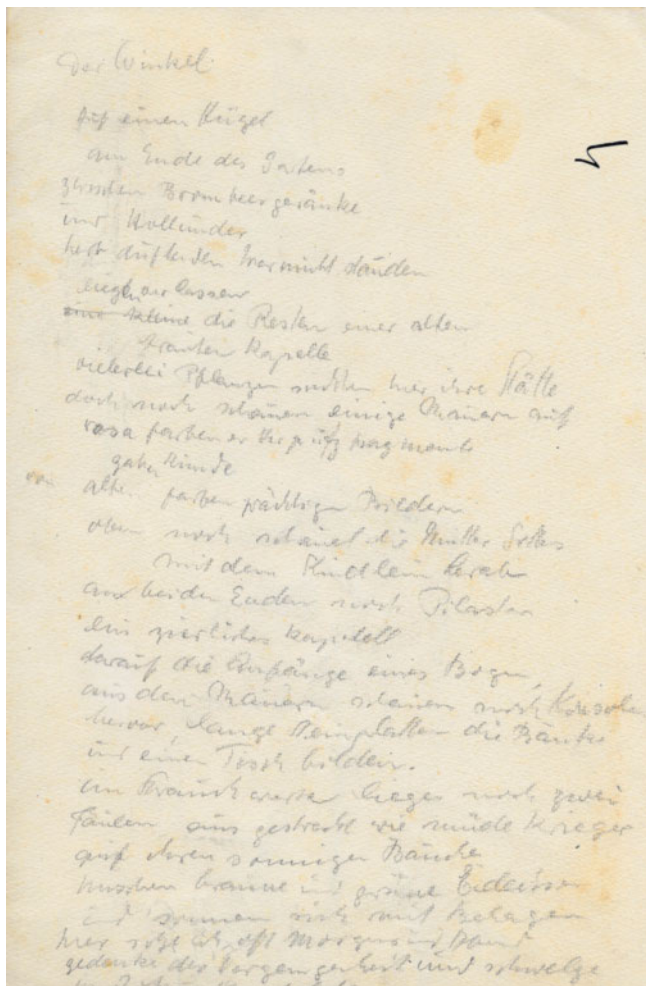 Der Winkel
Auf einen Hügel
am Ende des Gartens
zwischen Brombeergeränke
und Hollunder
herb duftenden Wermuthstauden
liegen verlassen
eine kleine die Resten einer alten
trauten Kapelle
vielerlei Pflanzen suchten hier ihre Stätte
doch noch schauen einige Mauern auf
rosa farbener Verputz fragmente
geben Kunde
von alten farbenprächtigen Bildern
oben noch schauet die Mutter Gottes
mit dem Kindlein herab
an beiden Enden noch Pilaster
ein zierliches Kapitell
darauf die Anfänge eines Bogen,
aus den Mauern schauen noch Konsolen
hervor, lange Steinplatten die Bänke
und einen Tisch bilden.
im Strauchwerke liegen noch zwei
Säulen ausgestreckt wie müde Krieger
auf ihren sonnigen Bäuche
huschen braune und grüne Eidechsen
und sonnen sich mit Behagen
hier sitze ich oft Morgens und Abend
gedenke der Vergangenheit und schwelge